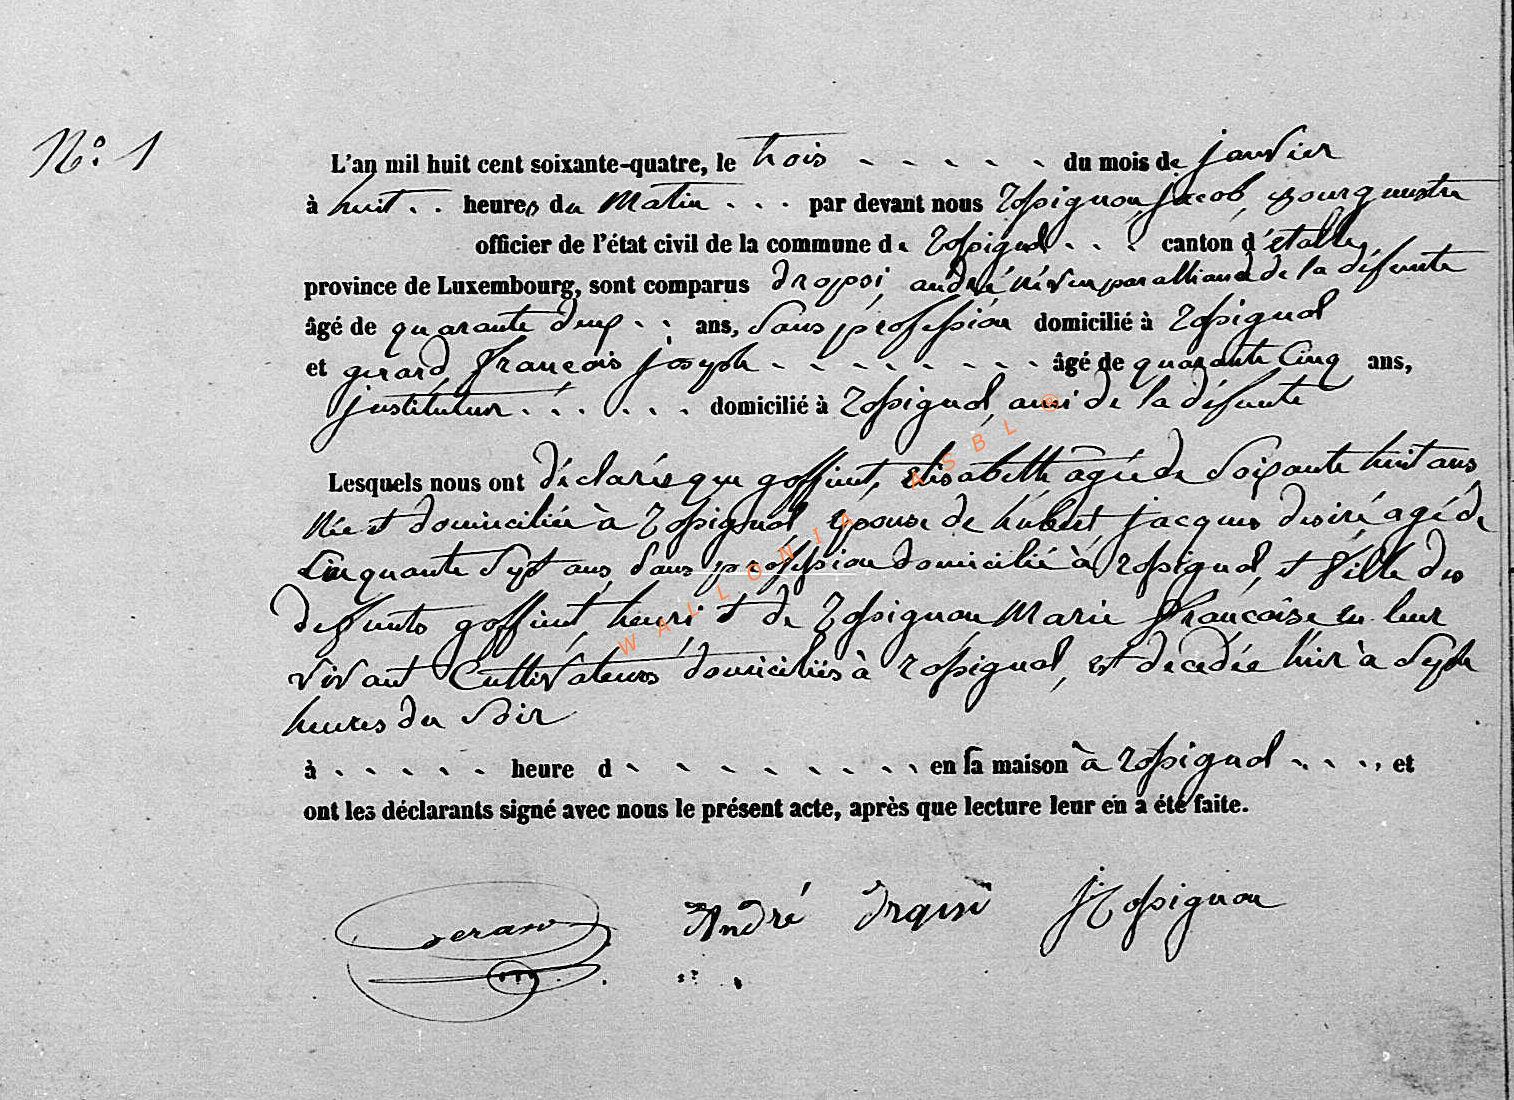 N° 1
L'an mil huit cent soixante-quatre, le trois - - - - - du mois de janvier
à huit - - heures du matin - - - par devant nous Rossignon, Jacob, Bourgmestre
officier de l'état civil de la commune de Rossignol - - - canton d'étalle,
province de Luxembourg, sont comparus dropsi, andré néveu par alliance de la défunte
âgé de quarante deux - - ans, sans profession domicilié à Rossignol
et gerard françois joseph - - - - - - - - âgé de quarante cinq ans,
instituteur - - - - - - domicilié à Rossignol, ami de la défunte
Lesquels nous ont déclarés que goffinet, élisabeth agée de soixante huit ans
née et domiciliée à Rossignol épouse de hubert jacques desiré agé de
cinquante sept ans, sans profession domicilié à rossignol, et fille des
defunts goffinet henri et de Rossignon Marie françoise en leur
vivant Cultivateurs domiciliés à rossignol, est decedée hier à sept
heures du soir
à - - - - - heure d - - - - - - - - - en sa maison à rossignol - - - - et
ont les déclarants signé avec nous le présent acte, après que lecture leur en a été faite.
Gerard André JRossignon
WALLONIA ASBL ©